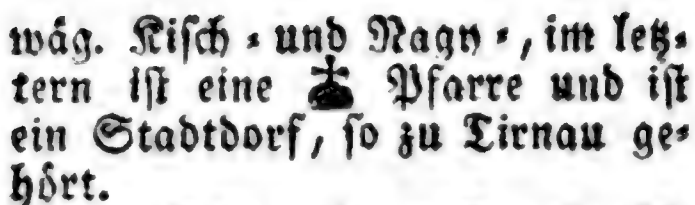 wág. Kisch - und Nagy -, im letz-
tern ist eine Pfarre und ist
ein Stadtdorf, so zu Tirnau ge-
hört.